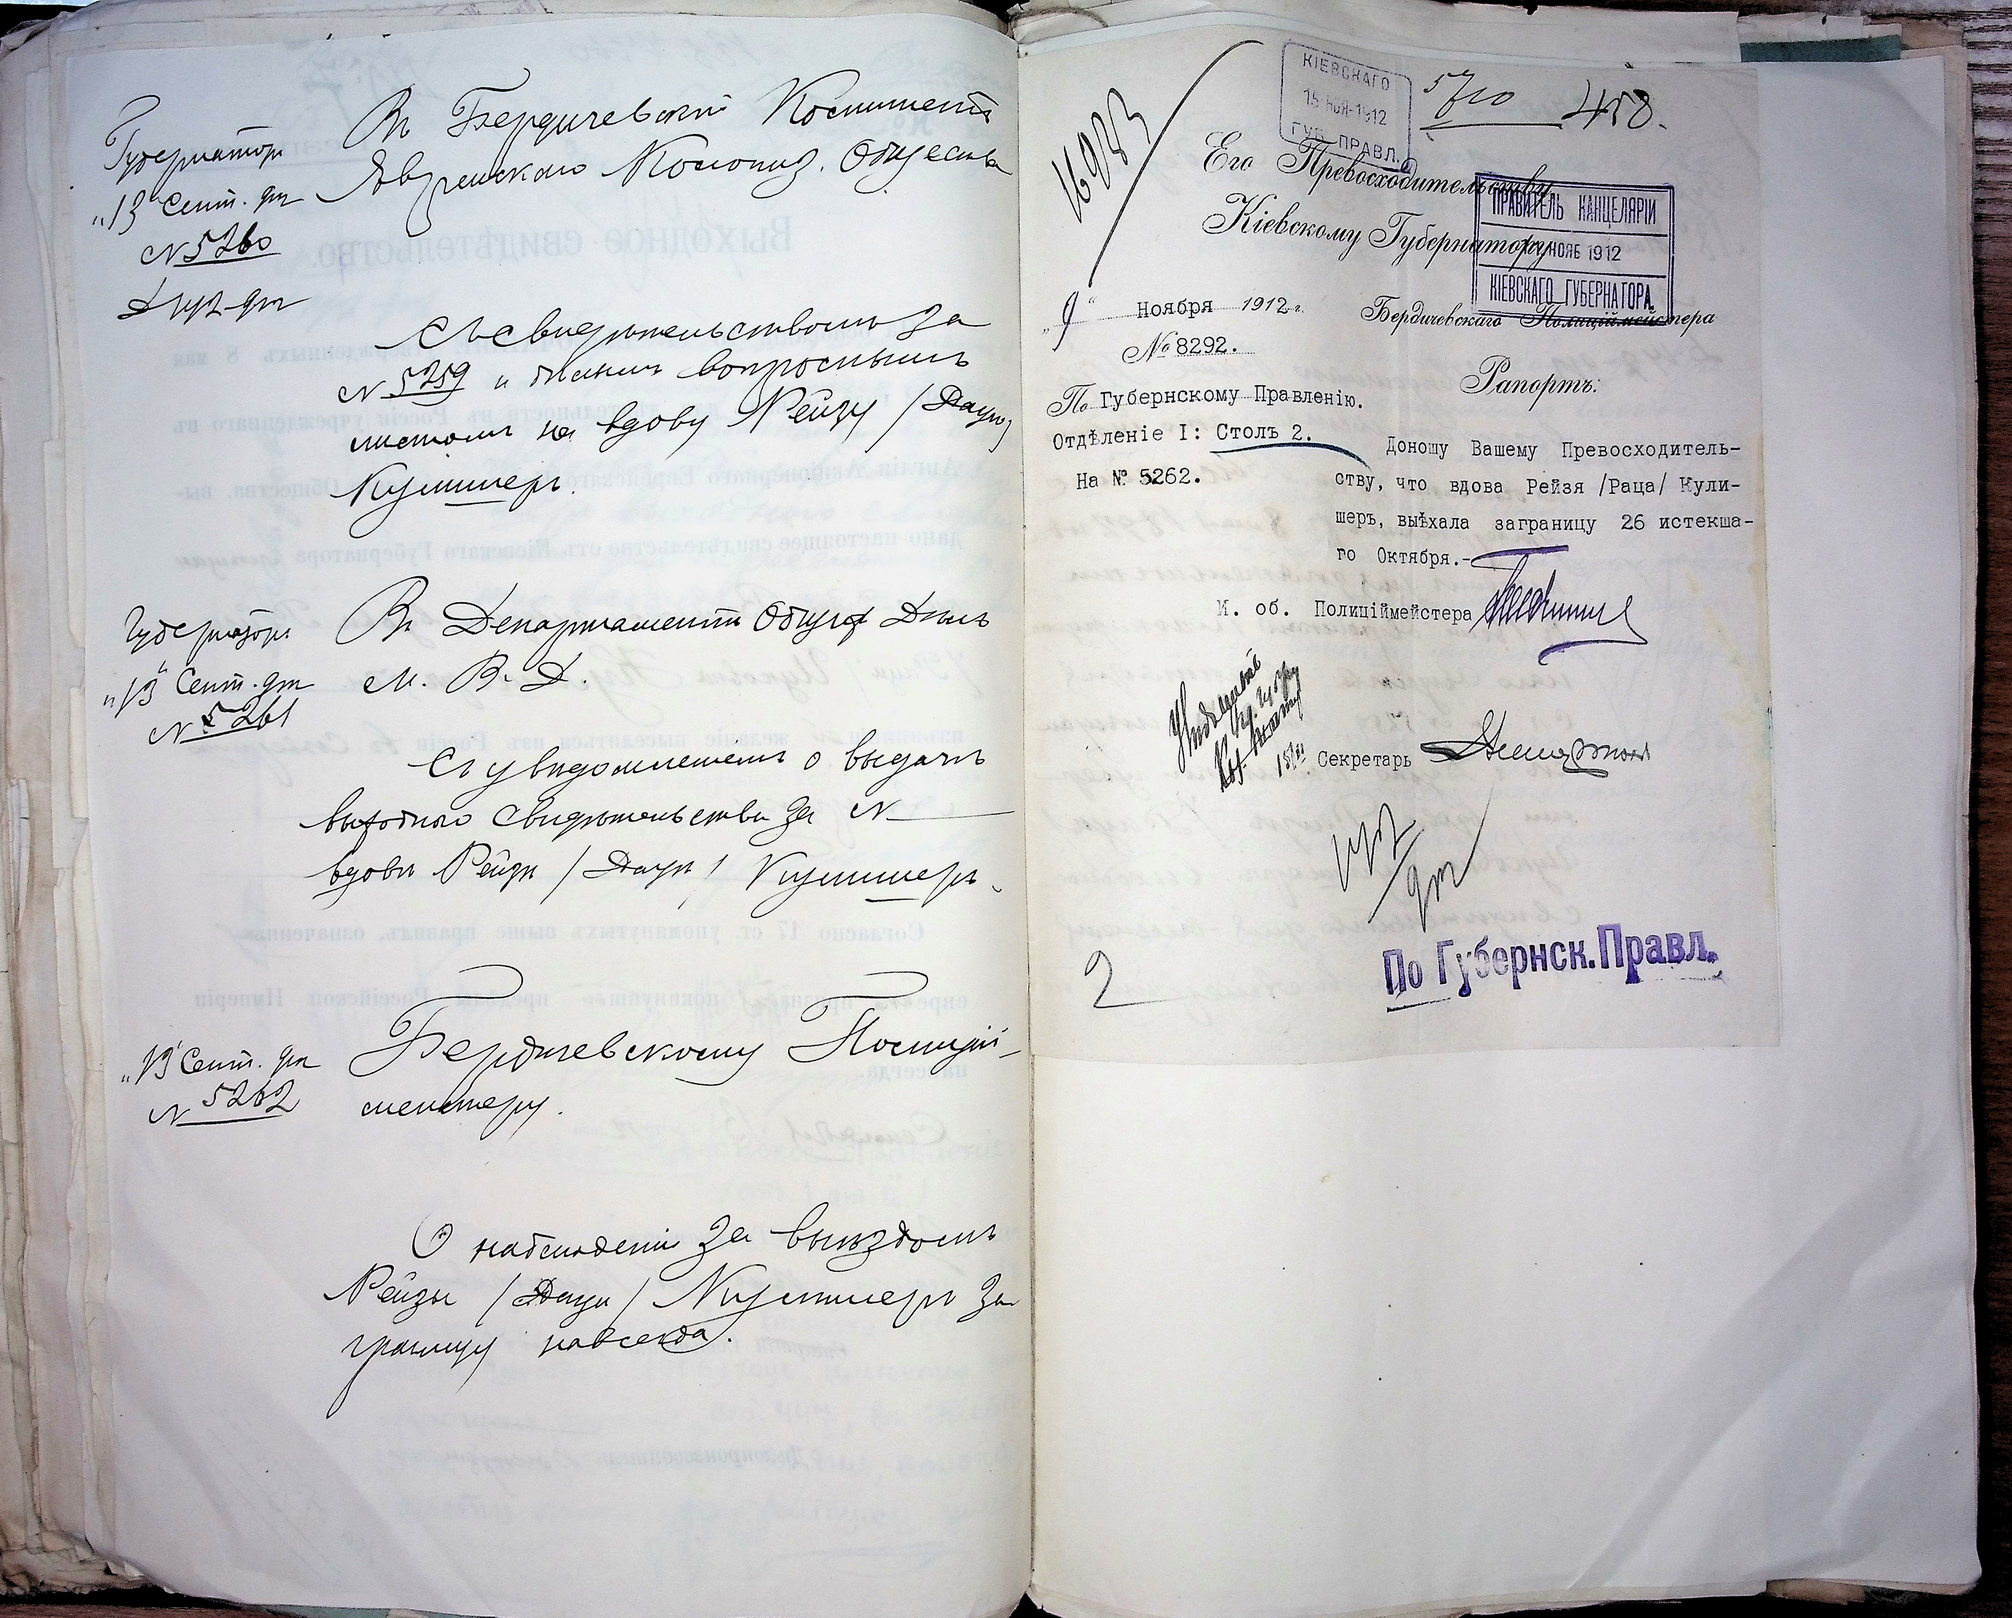 Губернаторъ
"13" Сент. дня
N 5260
Въ Бердичевскій Комитетъ
Еврейскаго Колониз. Общества
Съ свидѣтельствомъ за
N 5259 и вопроснымъ
листомъ на вдову Рейзу /Рацу/
Кулишеръ.
Губернаторъ
"13" Сент. дня
N 5261
Въ Департаментъ Общихъ Дѣлъ
М. В. Д.
Съ увѣдомленіемъ о выдачѣ
выходного свидѣтельства за N
вдовѣ Рейзѣ / Рацѣ / Кулишеръ.
"13" Сент. дня
N 5262
Бердичевскому Полицій-
мейстеру.
О наблюденіи за выѣздомъ
Рейзы / Рацы / Кулишеръ за
границу навсегда.
КІЕВСКАГО
15 НОЯ-1912
ГУБ. ПРАВЛ.
458.
16033
Его Превосходительству
Кіевскому Губернатору
ПРАВИТЕЛЬ КАНЦЕЛЯРІИ
НОЯБ 1912
КІЕВСКАГО ГУБЕРНАТОРА.
"9" Ноября 1912 г.
№ 8292.
Бердичевскаго Полиціймейстера
Рапортъ:
По Губернскому Правленію.
Отдѣленіе I: Столъ 2.
На № 5262.
Доношу Вашему Превосходитель-
ству, что вдова Рейзя /Раца/ Кули-
шеръ, выѣхала заграницу 26 истекша-
го Октября.-
И. об. Полиціймейстера
Секретарь
По Губернск. Правл.
2